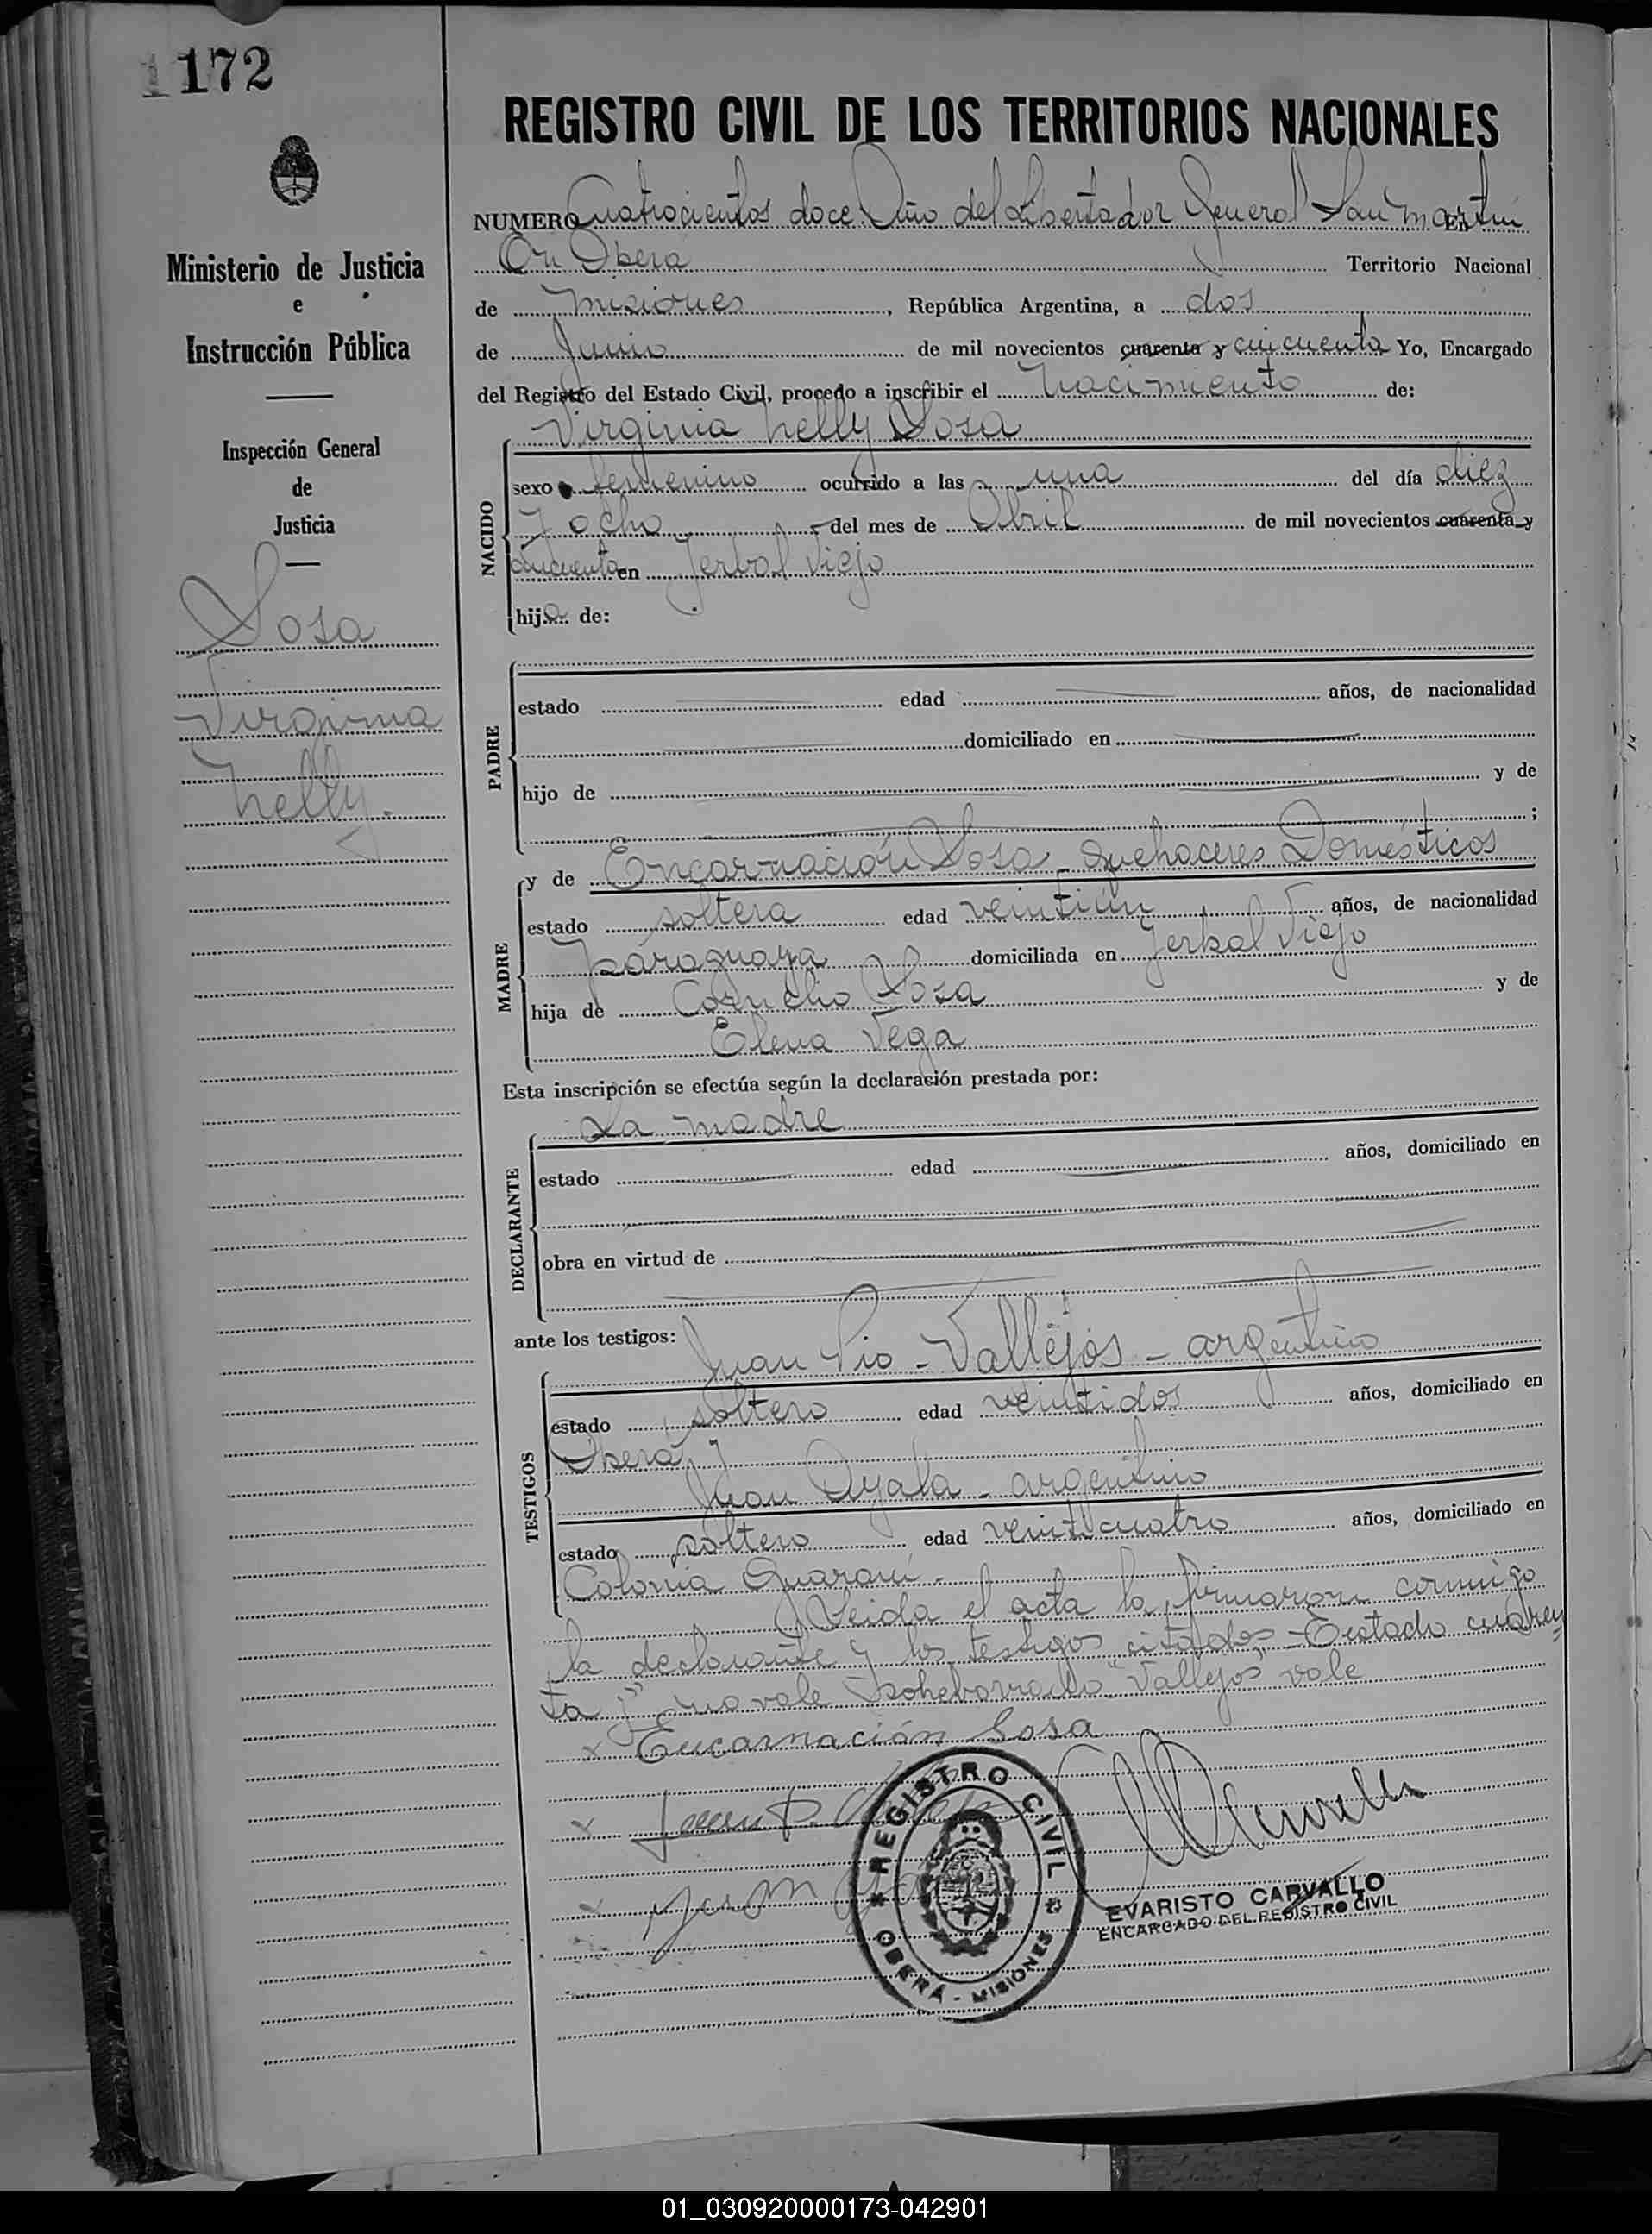 1172
Ministerio de Justicia
e
Instrucción Pública
Inspección General
de
Justicia
Sosa
Virginia
Nelly.
REGISTRO CIVIL DE LOS TERRITORIOS NACIONALES
NUMERO Cuatrocientos doce. Año del Libertador General San Martin En
En Oberá Territorio Nacional
de Misiones, República Argentina, a dos
de Junio de mil novecientos cuarenta y cincuenta Yo, Encargado
del Registro del Estado Civil, procedo a inscribir el Nacimiento de:
Virginia Nelly Sosa
NACIDO
sexo femenino ocurrido a las una del día diez
y ocho del mes de Abril de mil novecientos cuarenta y
cincuenta en Yerbal Viejo
hija de:
PADRE
estado edad años, de nacionalidad
domiciliado en
hijo de y de
;
y de Encarnación Sosa - Quehaceres Domésticos
MADRE
estado soltera edad veintiún años, de nacionalidad
paraguaya domiciliada en Yerbal Viejo
hija de Cornelio Sosa y de
Elena Vega
Esta inscripción se efectúa según la declaración prestada por:
La madre
DECLARANTE
estado edad años, domiciliado en
obra en virtud de
ante los testigos:
Juan Pio - Vallejos - argentino
TESTIGOS
estado soltero edad veintidos años, domiciliado en
Oberá y
Juan Ayala - argentino
estado soltero edad veinticuatro años, domiciliado en
Colonia Guaraní -
Leida el acta la firmaron conmigo
la declarante y los testigos citados - Testado cuaren
ta y" no vale Sobreborrado "Vallejos" vale
x Encarnación Sosa
x Juan P.
x Juan
REGISTRO CIVIL
OBERÁ - MISIONES
EVARISTO CARVALLO
ENCARGADO DEL REGISTRO CIVIL
01_030920000173-042901